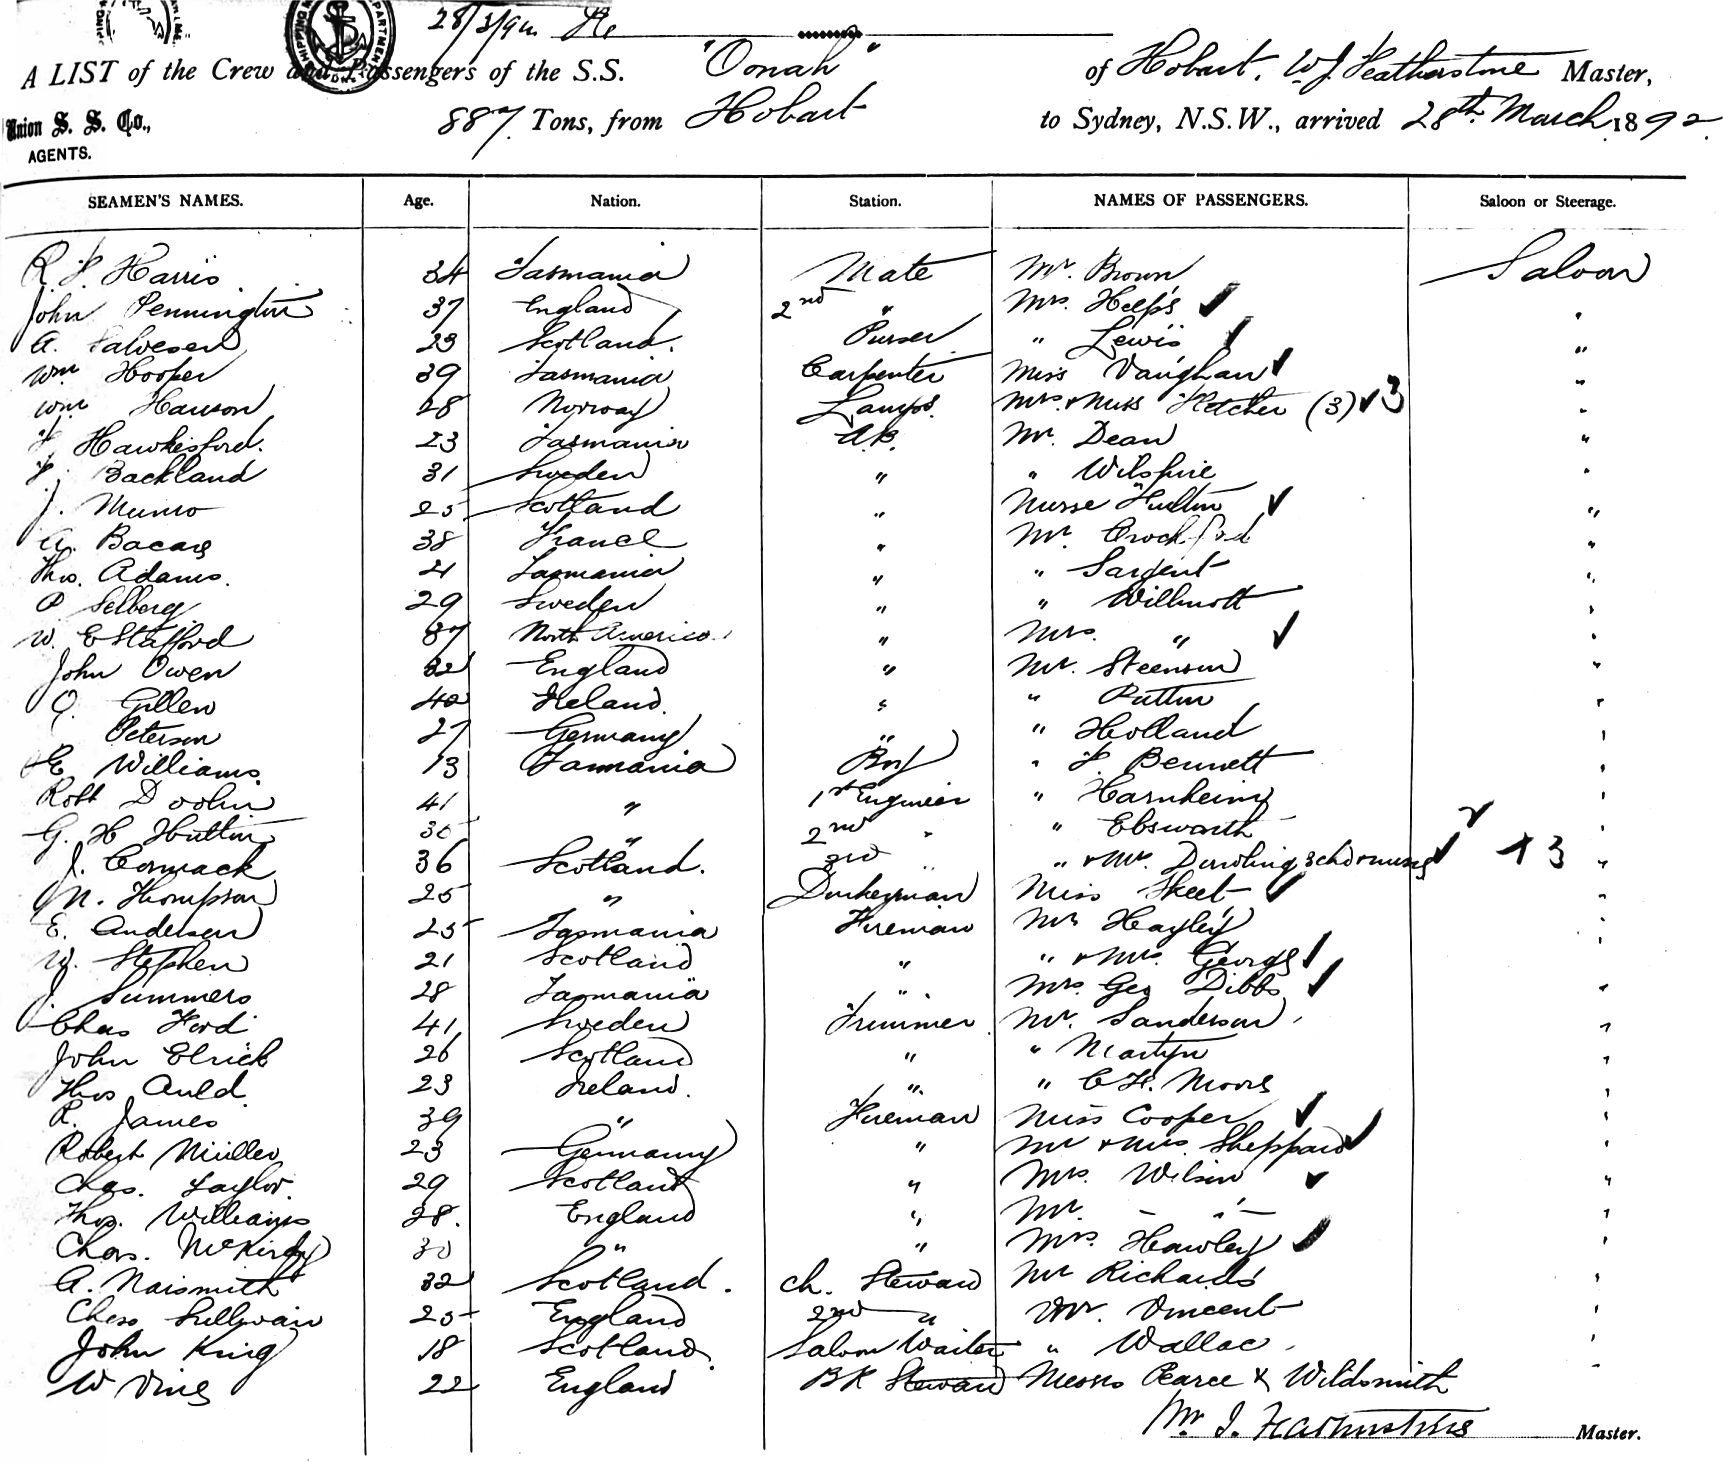 28/3/92
A LIST of the Crew and Passengers of the S.S. "Oonah" of Hobart, W J Featherstone Master,
Union S. S. Co., AGENTS. 887 Tons, from Hobart to Sydney, N.S.W., arrived 28th March 1892
SEAMEN'S NAMES. Age. Nation. Station. NAMES OF PASSENGERS. Saloon or Steerage.
R. F Harris 34 Tasmania Mate Mr. Brown Saloon
John Pennington 37 England 2nd " Mrs. Helps ✓ "
A. Salvesen 23 Scotland. Purser " Lewis ✓ "
Wm Hooper 39 Tasmania Carpenter Miss Vaughan ✓ "
Wm Hanson 28 Norway Lamps. Mrs. & Miss Fletcher (3) ✓ 3 "
F. Hawkesford. 23 Tasmania A.B. Mr. Dean "
F. Backland 31 Sweden " " Wilshire "
J. Munro 25 Scotland " Nurse Hutton ✓ "
A. Bacare 38 France " Mr. Crockford "
Thos. Adams. 21 Tasmania " " Sargent "
P Selberg 29 Sweden " " Willmott "
W. E Stafford 37 North America. " Mrs. " ✓ "
John Owen 32 England " Mr. Steenson "
O. Gillen 40 Ireland. " " "
Peterson 27 Germany " " Holland "
E Williams. 13 Tasmania Boy " F. Bennett "
Robt Doolin 41 " 1st Engineer " Harnheim "
G. H Hutton 35 " 2nd " " Ebsworth "
J. Cormack 36 Scotland. 3rd " " & Mrs. Dowling 3 ch & nurse ✓ 2 + 3 "
M. Thompson 25 " Donkeyman Miss Skeet ✓ "
E. Andersen 25 Tasmania Fireman Mr Hayley "
W. Stephen 21 Scotland " " & Mrs. George ✓ "
J. Summers 28 Tasmania " Mrs. Geo Dibbs ✓ "
Chas Ford 41 Sweden Trimmer Mr. Sanderson "
John Elrick 26 Scotland " " Martyn "
Thos Auld. 23 Ireland. " " C. H. Moore "
R. James 39 " Fireman Miss Cooper ✓ "
Robert Müller 23 Germany " Mr & Mrs. Sheppard ✓ "
Chas. Taylor. 29 Scotland " Mrs. Wilson ✓ "
Thos. Williams 28. England " Mr. " "
Chas. McKirdy 30 " " Mrs. Hawley ✓ "
A. Naismith 32 Scotland. Ch. Steward Mr Richards "
Chas Sullivan 25 England 2nd " Mr. Vincent "
John King 18 Scotland. Saloon Waiter " Wallac "
W Vine 22 England BK Steward Messrs Pearce & Wildsmith
Wm. J. Featherstone Master.